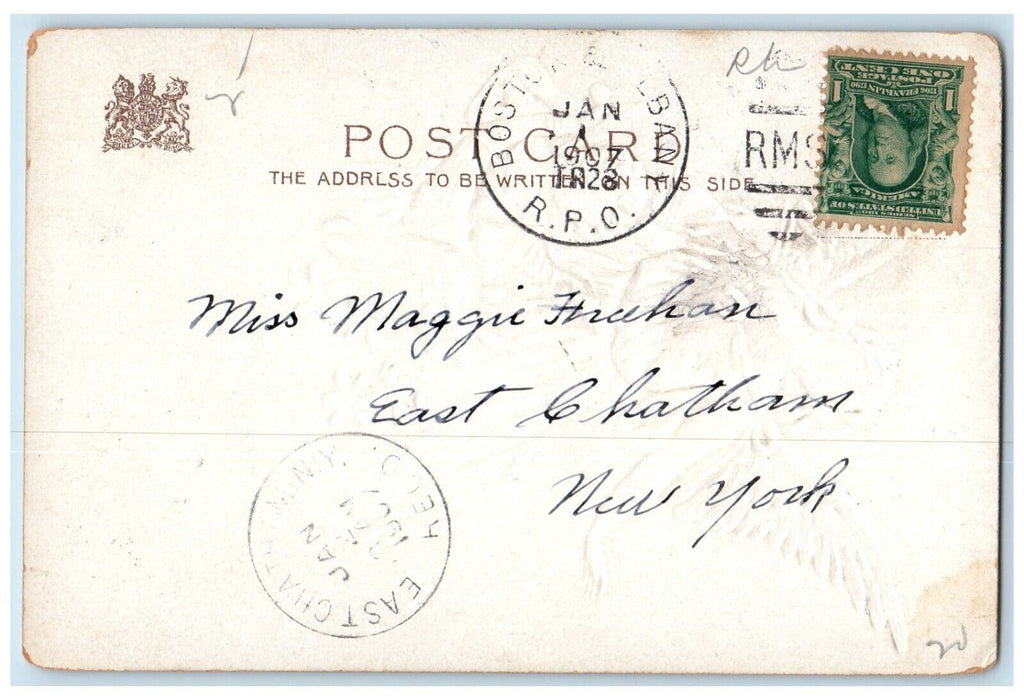 POST CARD
THE ADDRESS TO BE WRITTEN ON THIS SIDE
BOSTON & ALBANY
JAN
1
1907
TR28
R.P.O.
RMS
POSTAGE
ONE CENT
1 1
1706 FRANKLIN 1790
UNITED STATES OF
AMERICA
Miss Maggie Freehan
East Chatham
New York
EAST CHATHAM, N.Y.
REC'D.
JAN
AM
1907